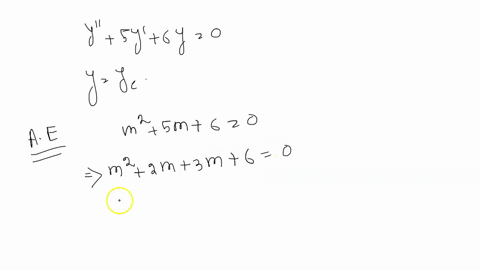 y'' + 5y' + 6y = 0
y = y_c .
A.E m² + 5m + 6 = 0
⇒ m² + 2m + 3m + 6 = 0